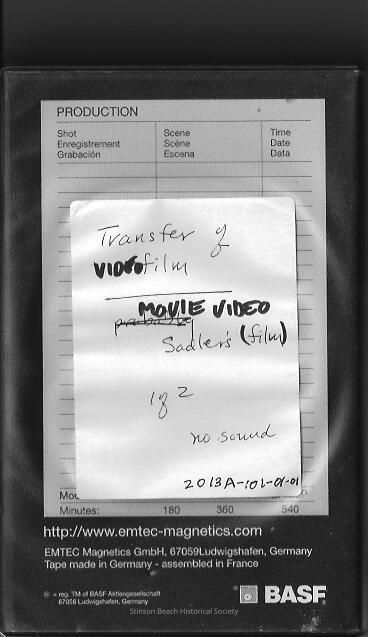 PRODUCTION
Shot Scene Time
Enregistrement Scène Date
Grabación Escena Data
Transfer of
VIDEO film
MOVIE VIDEO
probably
Sadler's (film)
1 of 2
no sound
2013A-101-01-01
Minutes: 180 360 540
http://www.emtec-magnetics.com
EMTEC Magnetics GmbH, 67059Ludwigshafen, Germany
Tape made in Germany - assembled in France
® = reg. TM of BASF Aktiengesellschaft
67056 Ludwigshafen, Germany
BASF
Stinson Beach Historical Society